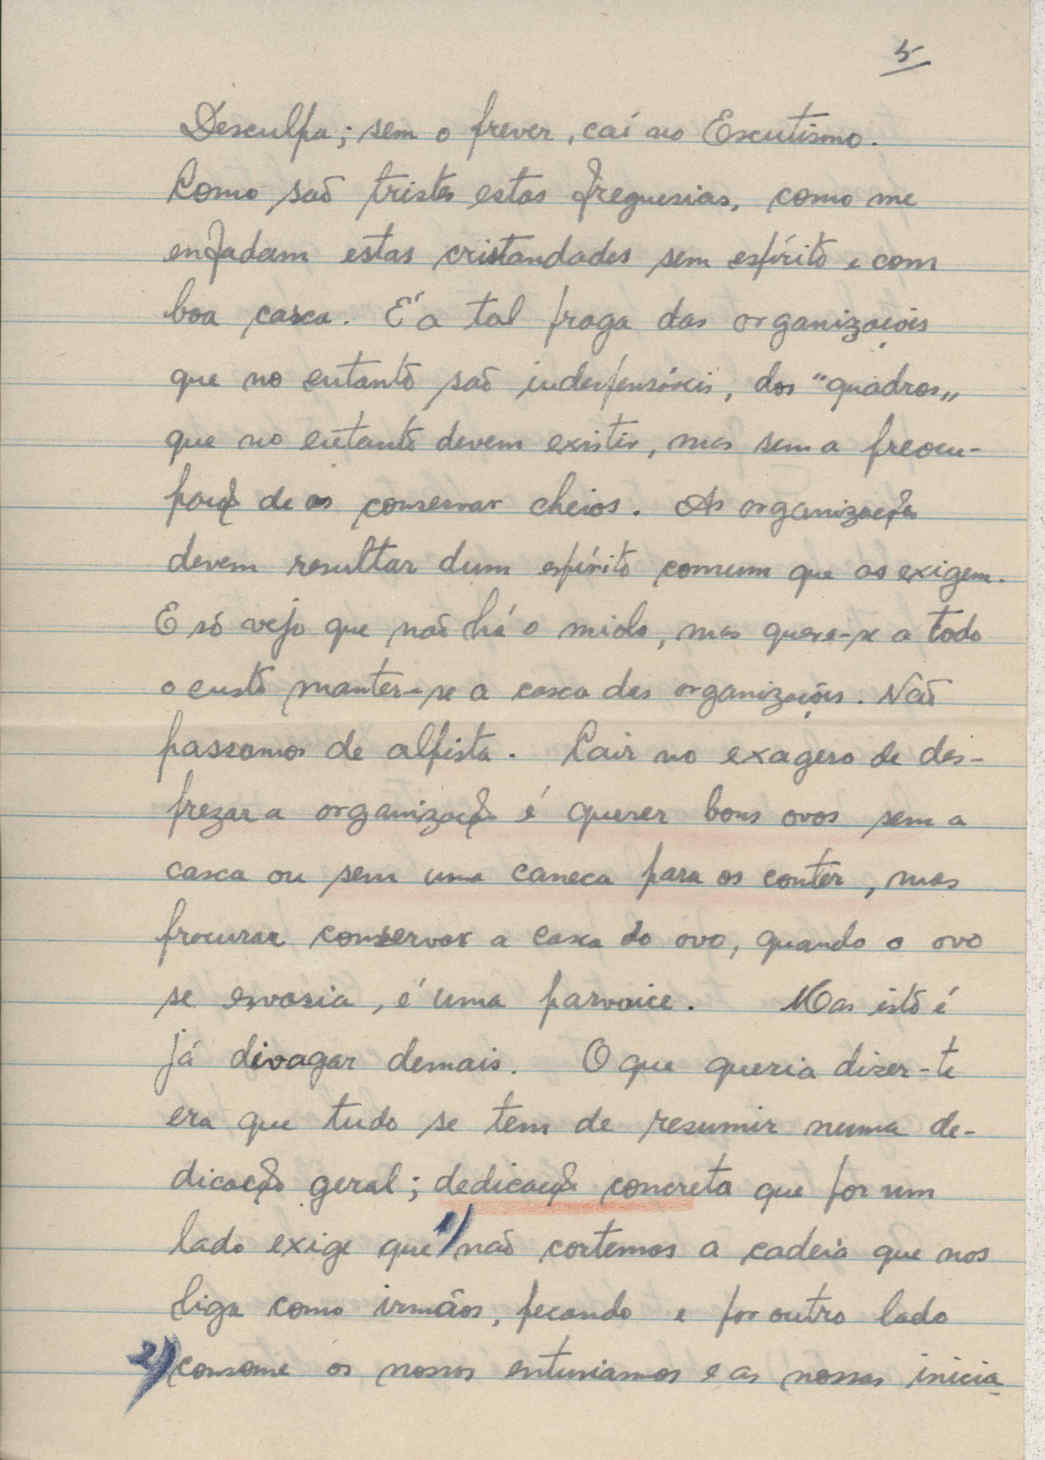 5
Desculpa; sem o prever, caí no Escutismo.
Como são tristes estas freguesias, como me
enfadam estas cristandades sem espírito e com
boa casca. É a tal praga das organizações
que no entanto são indespensáveis, dos "quadros"
que no entanto devem existir, mas sem a preocu-
pação de os conservar cheios. As organizações
devem resultar dum espírito comum que as exigem.
E só vejo que não há o miolo, mas quere-se a todo
o custo manter-se a casca das organizações. Não
passamos de alpista. Cair no exagero de des-
prezar a organização é querer bons ovos sem a
casca ou sem uma caneca para os conter, mas
procurar conservar a casca do ovo, quando o ovo
se esvasia, é uma parvoice. Mas isto é
já divagar demais. O que queria dizer-te
era que tudo se tem de resumir numa de-
dicação geral; dedicação concreta que por um
lado exige que 1) não cortemos a cadeia que nos
liga como irmãos, pecando e por outro lado
2) consome os nossos entusiasmos e as nossas inicia